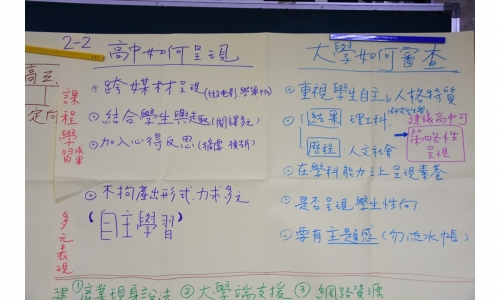 2-2 高中如何呈現
課程學習成果
跨媒材呈現
結合學生興趣
加入心得反思
不拘產出形式,力求多元
(自主學習)
多元表現
定向
大學如何審查
重視學生自主&人格特質
結果 理工科
歷程 人文社會
建議高中可
策略性
呈現
在學科能力之上呈現素養
是否呈現學生性向
要有主題感(勿流水帳)
①產業現身說法 ②大學端支援 ③網路資源